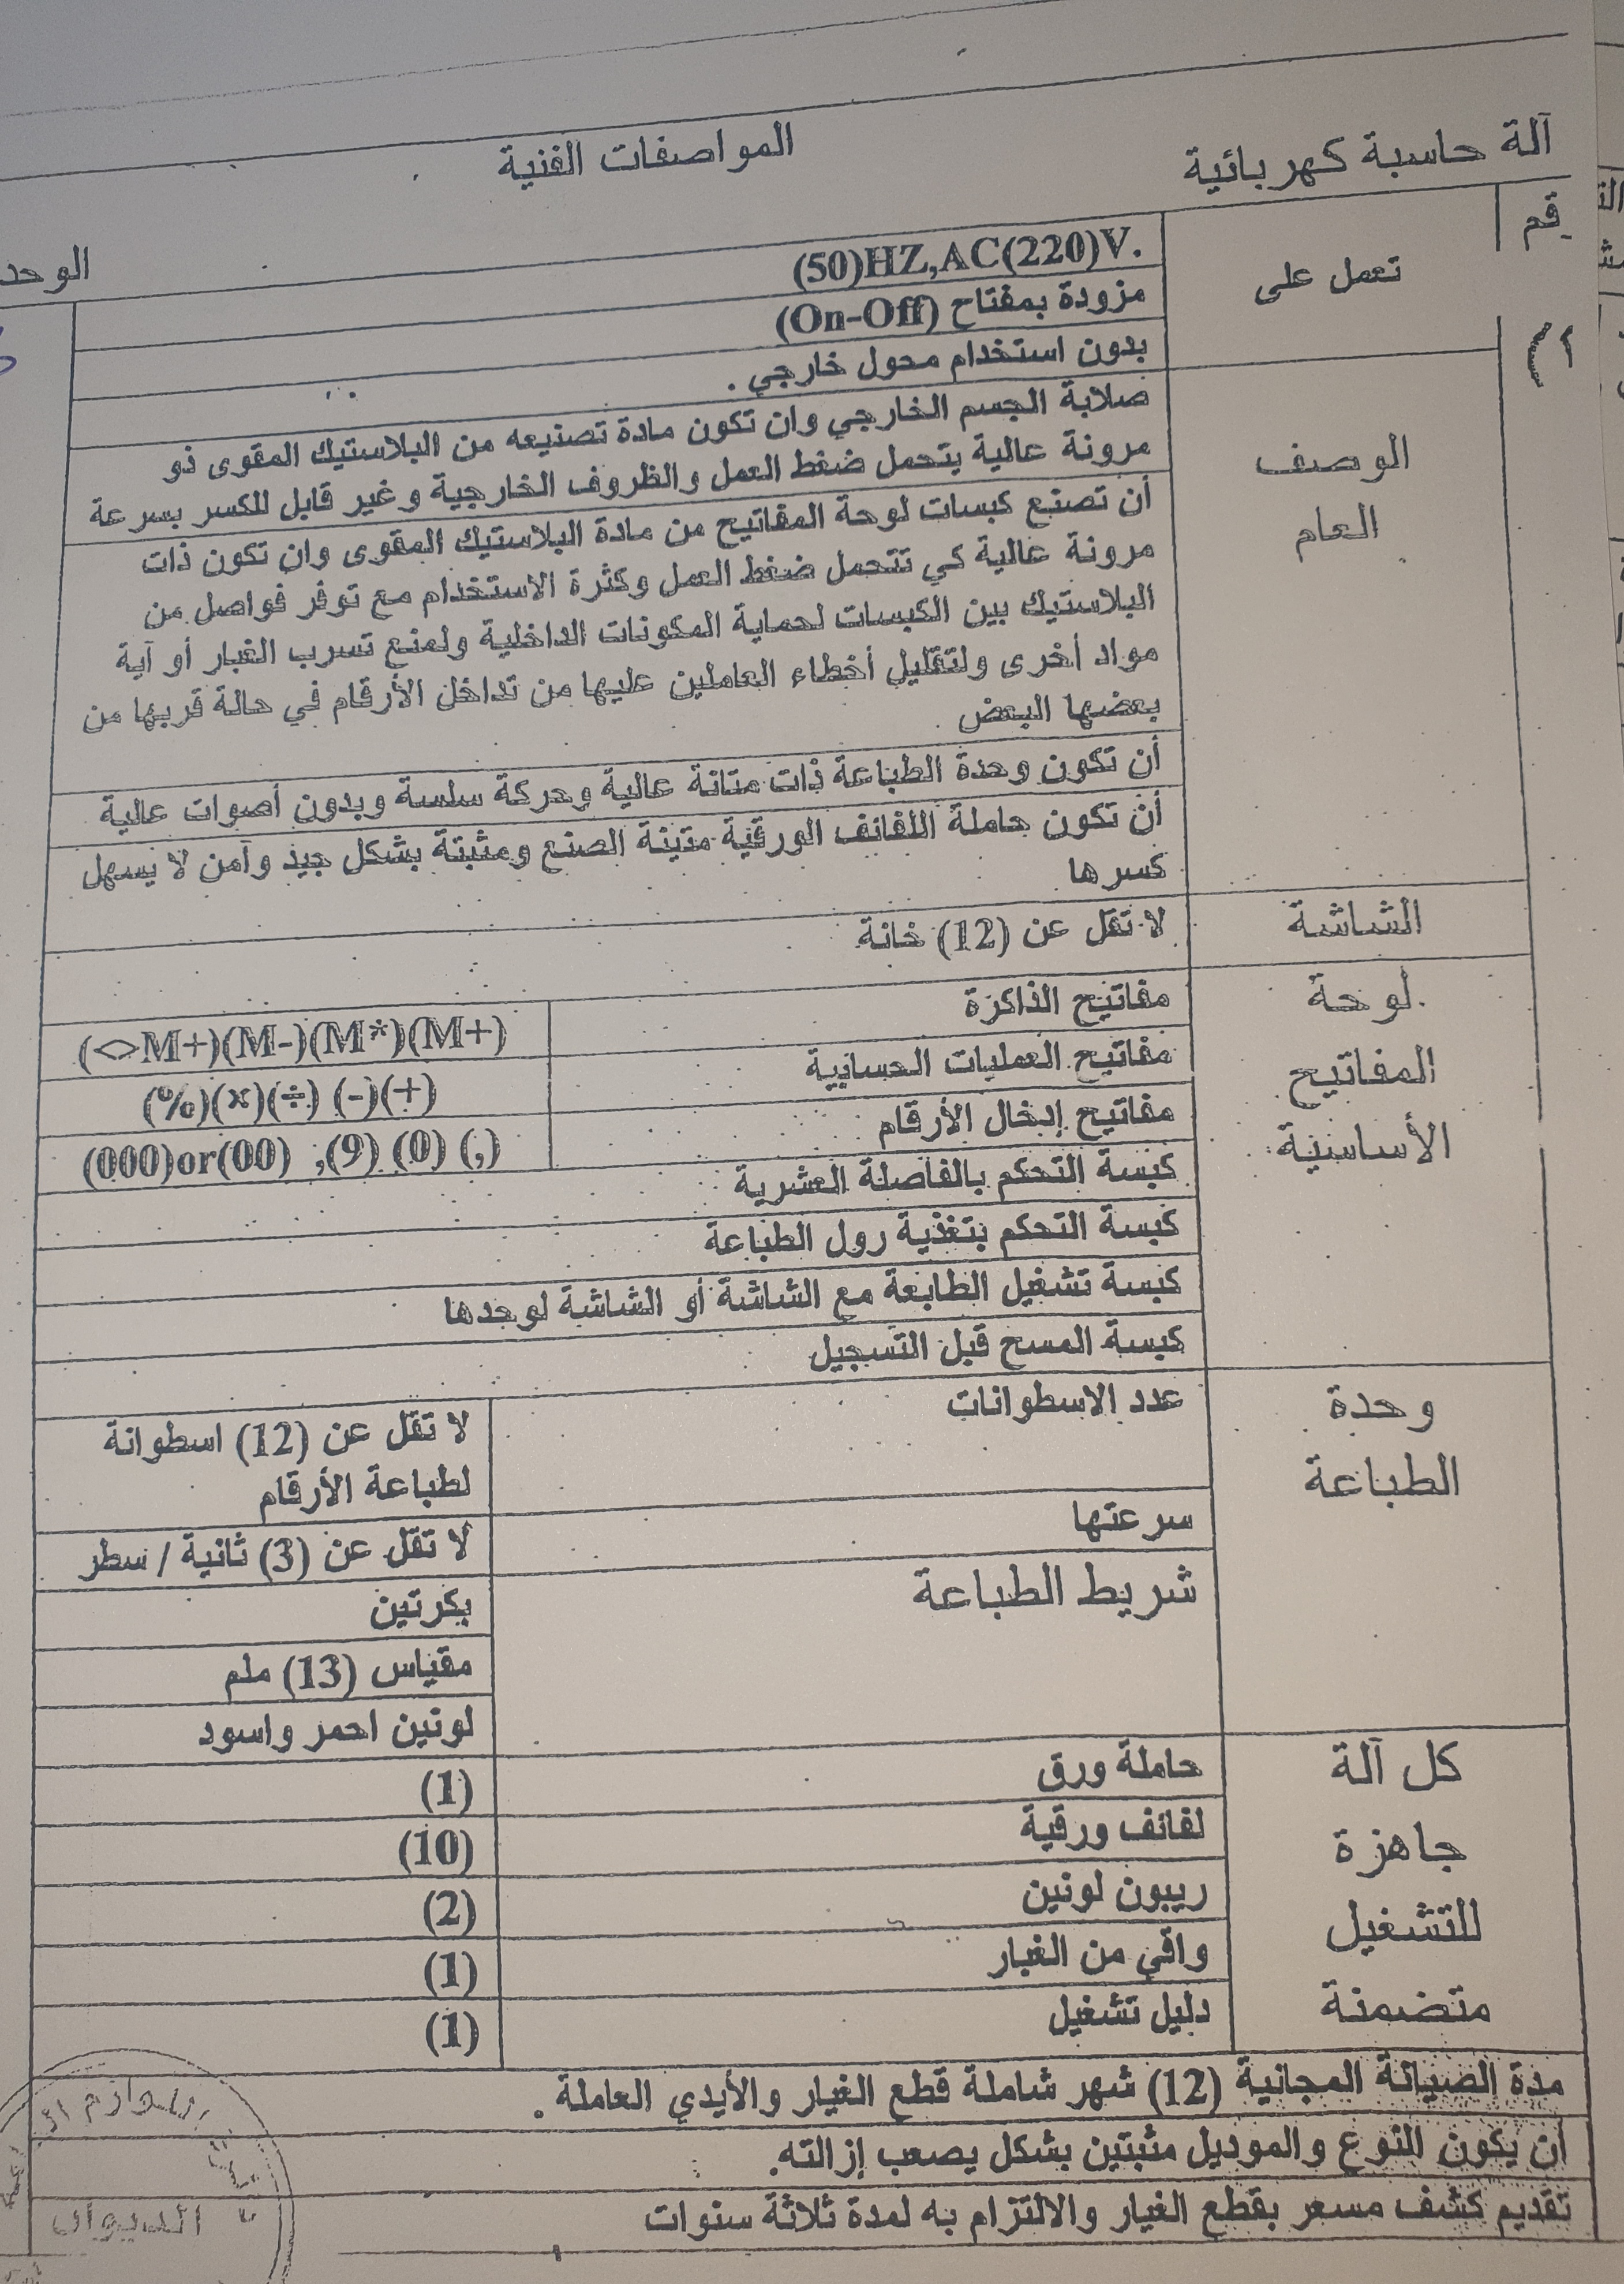 آلة حاسبة كهربائية
المواصفات الفنية
قم
الوحد
تعمل على
(50)HZ,AC(220)V.
مزودة بمفتاح (On-Off)
بدون استخدام محول خارجي .
الوصف
العام
صلابة الجسم الخارجي وان تكون مادة تصنيعه من البلاستيك المقوى ذو
مرونة عالية يتحمل ضغط العمل والظروف الخارجية وغير قابل للكسر بسرعة
أن تصنع كبسات لوحة المفاتيح من مادة البلاستيك المقوى وان تكون ذات
مرونة عالية كي تتحمل ضغط العمل وكثرة الاستخدام مع توفر فواصل من
البلاستيك بين الكبسات لحماية المكونات الداخلية ولمنع تسرب الغبار أو آية
مواد أخرى ولتقليل أخطاء العاملين عليها من تداخل الأرقام في حالة قربها من
بعضها البعض
أن تكون وحدة الطباعة ذات متانة عالية وحركة سلسة وبدون أصوات عالية
أن تكون حاملة اللفائف الورقية متينة الصنع ومثبتة بشكل جيد وآمن لا يسهل
كسرها
الشاشة
لا تقل عن (12) خانة
لوحة
المفاتيح
الأساسية
مفاتيح الذاكرة
(M+)(M*)(M-)(M+<>)
مفاتيح العمليات الحسابية
(+)(-) (÷)(×)(%)
مفاتيح إدخال الأرقام
(,) (0) (9), (00)or(000)
كبسة التحكم بالفاصلة العشرية
كبسة التحكم بتغذية رول الطباعة
كبسة تشغيل الطابعة مع الشاشة أو الشاشة لوحدها
كبسة المسح قبل التسجيل
وحدة
الطباعة
عدد الاسطوانات
لا تقل عن (12) اسطوانة
لطباعة الأرقام
سرعتها
لا تقل عن (3) ثانية / سطر
شريط الطباعة
بكرتين
مقياس (13) ملم
لونين احمر واسود
كل آلة
جاهزة
للتشغيل
متضمنة
حاملة ورق
(1)
لفائف ورقية
(10)
ريبون لونين
(2)
واقي من الغبار
(1)
دليل تشغيل
(1)
مدة الصيانة المجانية (12) شهر شاملة قطع الغيار والأيدي العاملة .
أن يكون النوع والموديل مثبتين بشكل يصعب إزالته.
تقديم كشف مسعر بقطع الغيار والالتزام به لمدة ثلاثة سنوات
اللوازم
الديوان